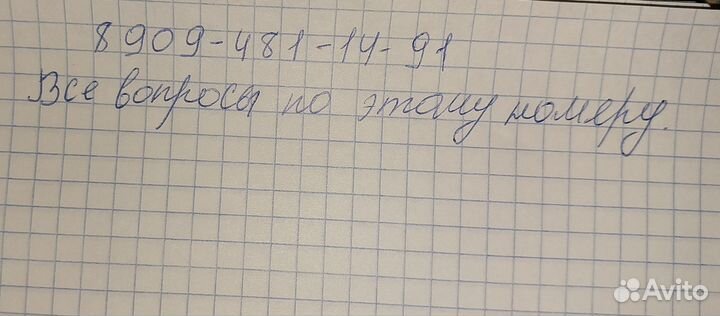 8909-481-14-91
Все вопросы по этому номеру.
Avito